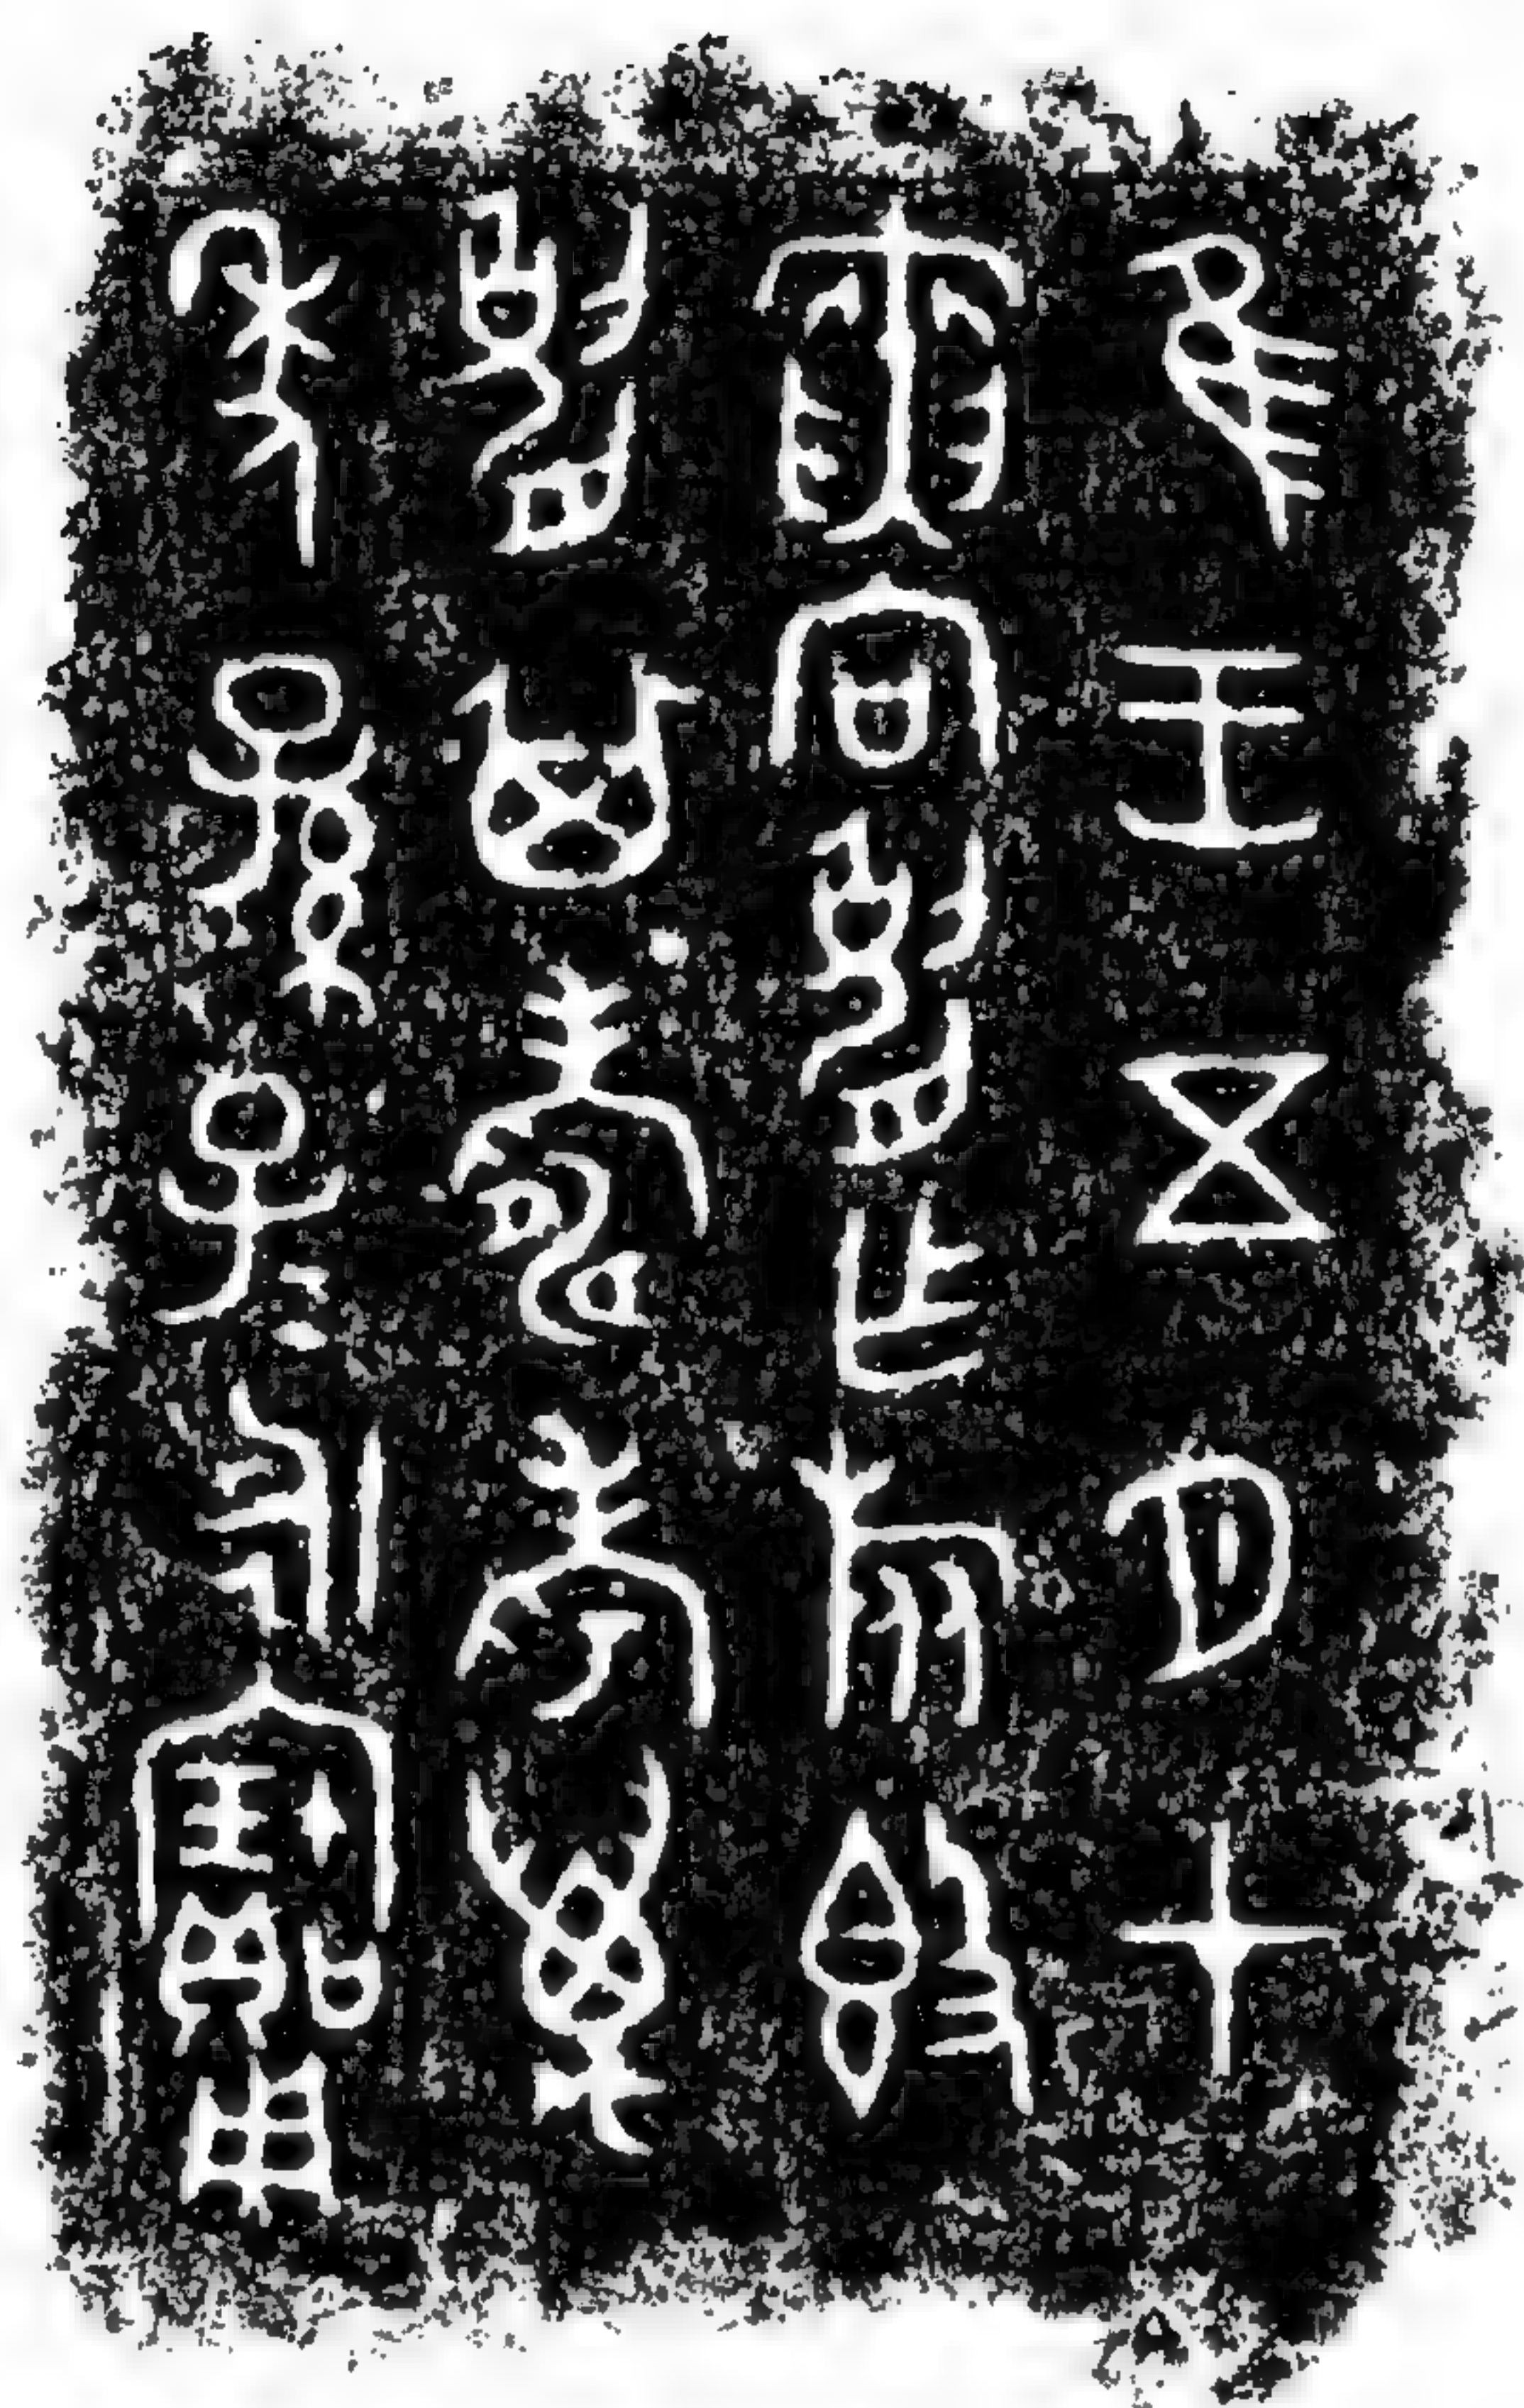 隹王五月甲
寅向𠭯乍旅𣪘
𠭯其壽考萬
年孫子=永寶用